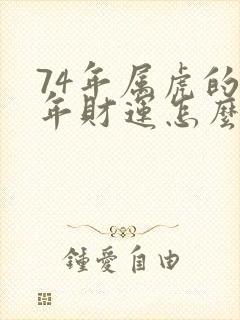 74年属虎的
年财运怎麽
鍾愛自由